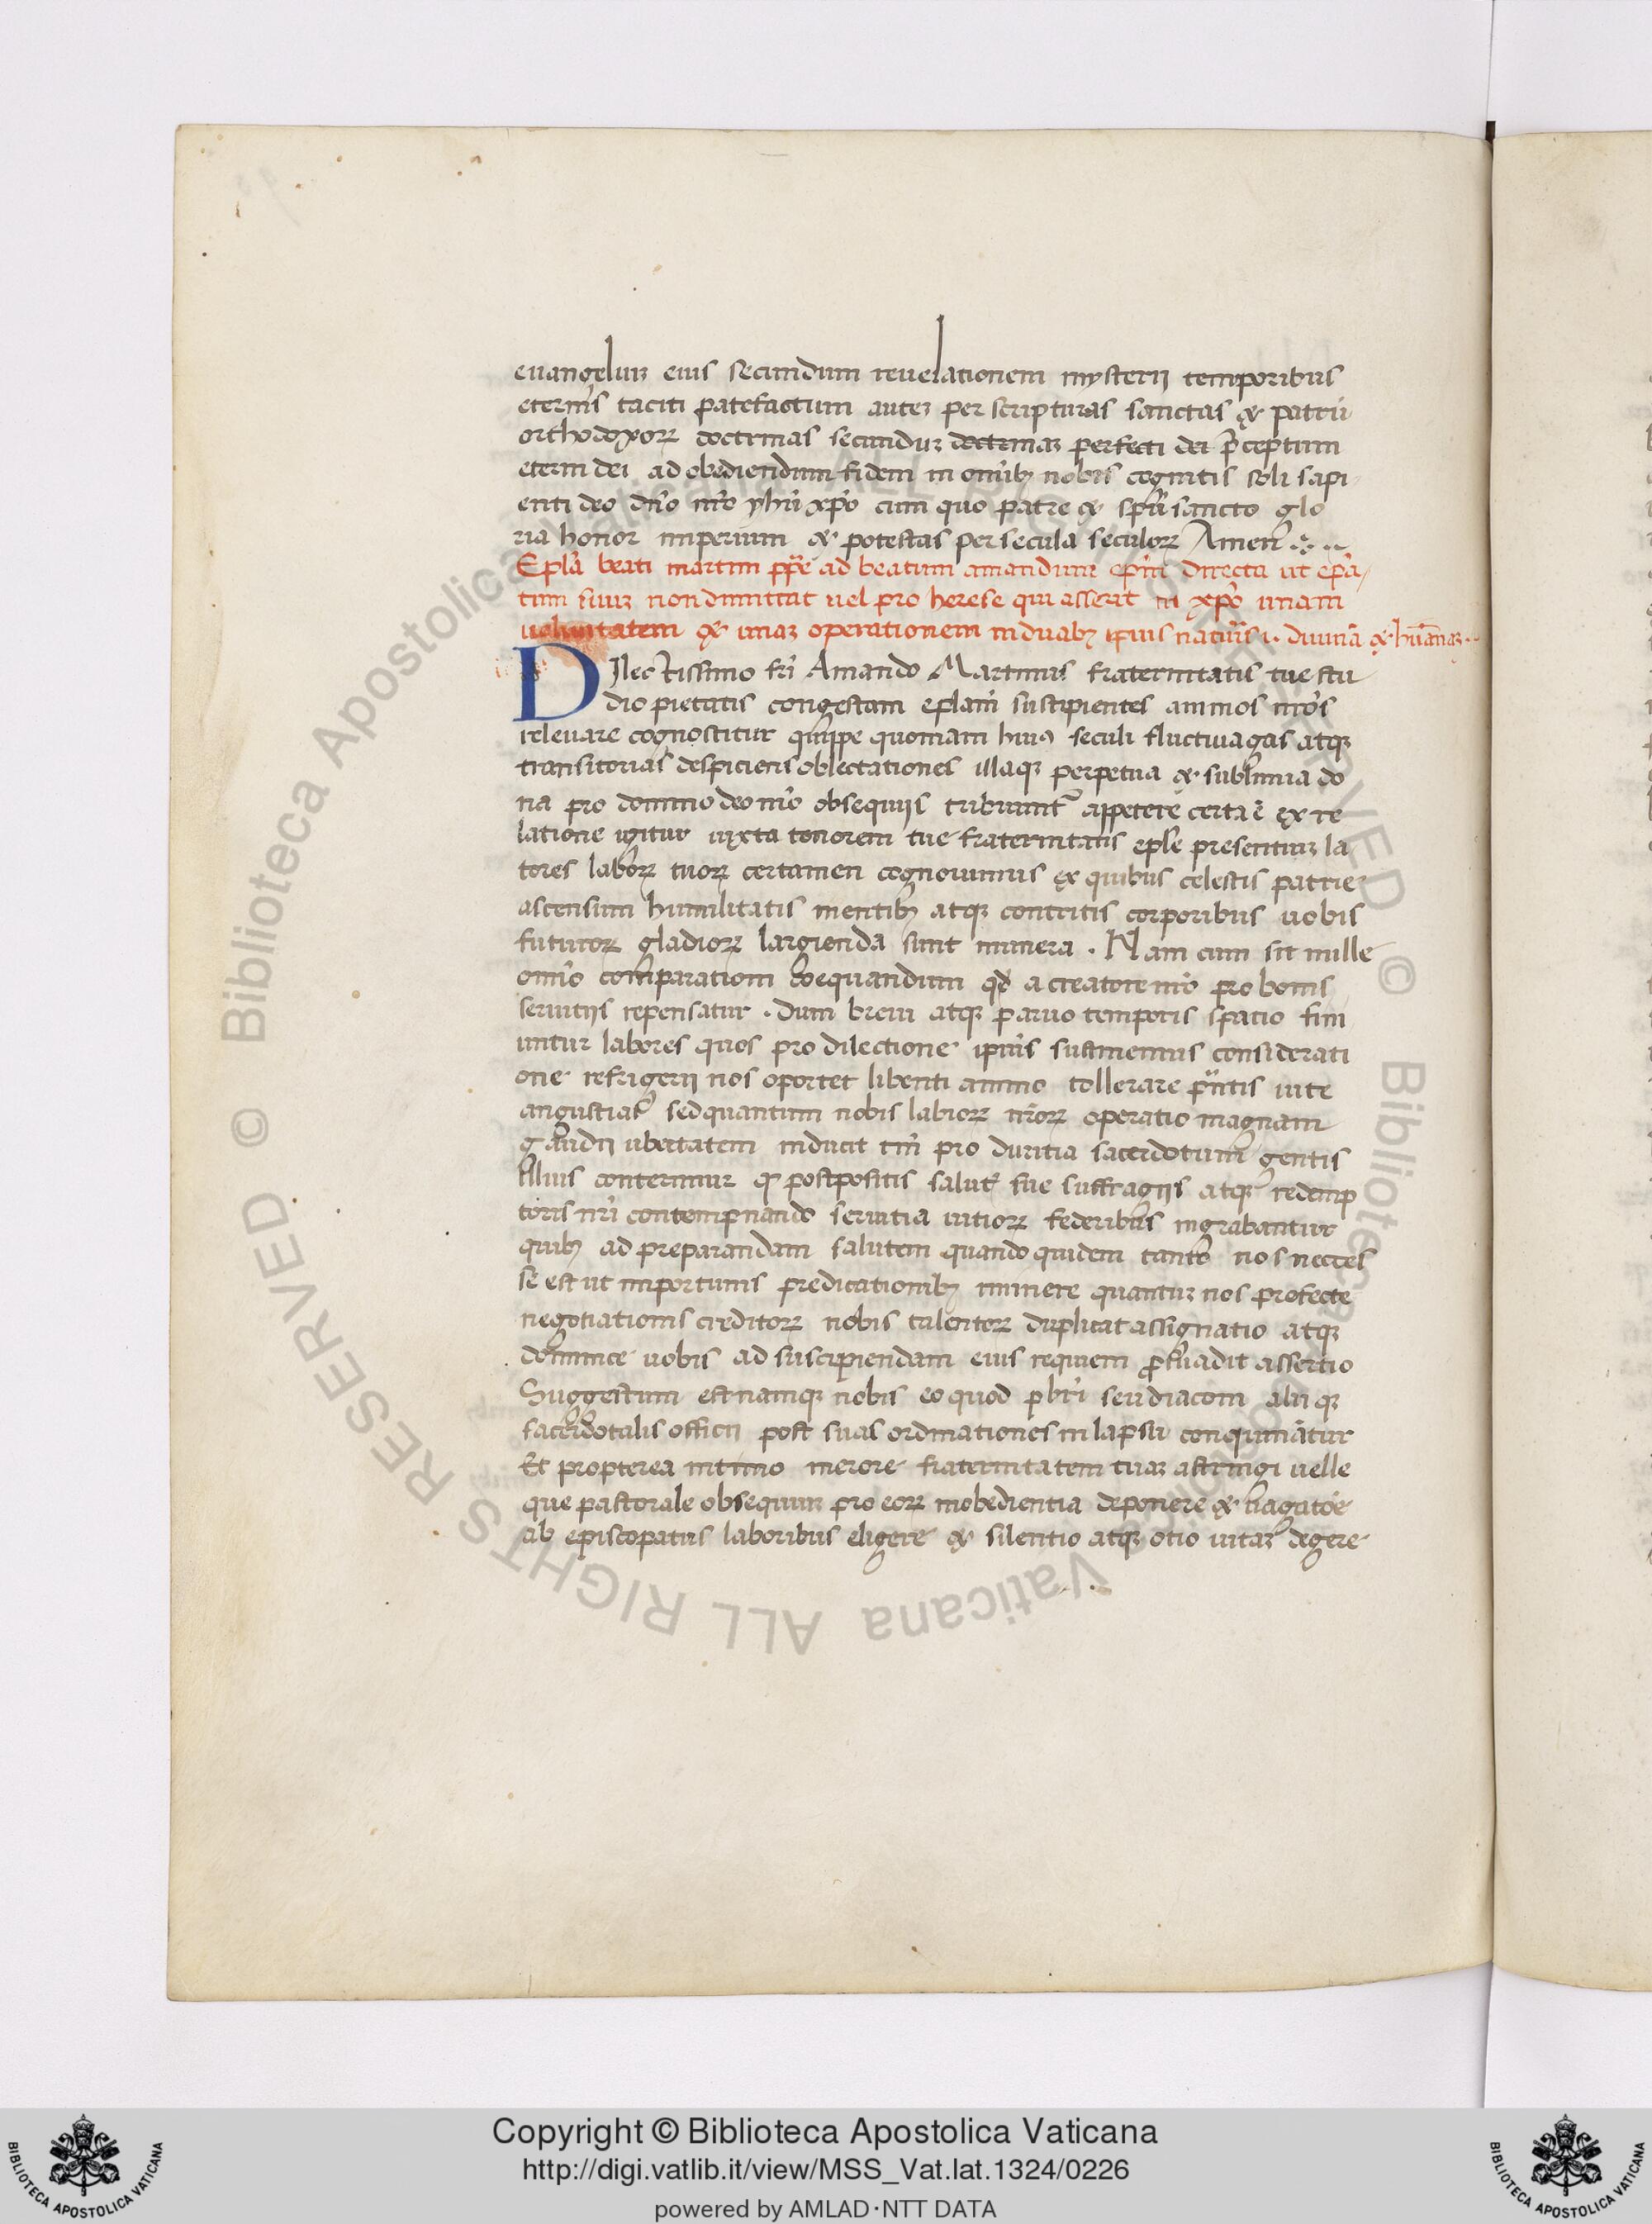 euangeluz eius secundum reuelationem mysterij temporibus
eternis taciti patefactum autez per scripturas sanctas & patrū
orthodoxoꝝ doctrinas secunduz doctrinaz perfecti dei p̄ceptum
eterni dei ad obediendum fidem in om̄ibꝫ nobis cognitis soli sapi
enti deo dn̄o nr̄o yhū xp̄o cum quo patre & sp̄u sancto glo
ria honor imperium & potestas per secula seculoꝝ Amen
Epl̄a beati martini pp̄e ad beatum amandum ep̄m directa ut ep̄a
tum suuz non dimittat uel pro herese qui asserit in xp̄o unam
uoluntatem & unaz operationem in duabꝫ ipius naturis .i. diuinā & hūanaz
Dilectissimo fr̄i Amando Martinus fraternitatis tue stu
dio pietatis congestam epl̄am suscipientes animos nr̄os
releuare cognoscitur quippe quoniam huiꝰ seculi fluctiuagas atqꝫ
transitorias despiciens oblectationes illaqꝫ perpetua & sublimia do
na pro domino deo nr̄o obsequijs tribuunt᷑ appetere certa ē ex re
latione igitur iuxta tonorem tue fraternitatis epl̄e presentiuz la
tores laboꝝ tuoꝝ certamen cognouimus ex quibus celestis patrie
ascensum humilitatis mentibꝫ atqꝫ contritis corporibus uobis
futuroꝝ gladioꝝ largienda sunt munera . Nam cum sit mille
om̄o comparationi coequandum qd̄ a creatore nr̄o pro bonis
seruitijs repensatur . Dum breui atqꝫ paruo temporis spatio fini
untur labores quos pro dilectione ipius sustinemus considerati
one refrigerij nos oportet libenti animo tollerare pn̄tis uite
angustias sed quantum nobis labioꝝ nr̄oꝝ operatio magnam
gaudij ubertatem inducit tm̄ pro duritia sacerdotum gentis
illius conterimur & postpositis salutꝭ sue suffragijs atqꝫ redemp
toris nr̄i contempnando seruitia uitioꝝ federibus ingrabantur
quibꝫ ad preparandam salutem quando quidem tanto nos neces
se est ut importunis predicationibꝫ iminere quantuz nos profecte
negotiationis creditoꝝ nobis talentoꝝ duplicat assignatio atqꝫ
dominice uobis ad suscipiendam eius requiem ꝓsuadit assertio
Suggestum est namqꝫ nobis eo quod pbr̄i seu diaconi alij qꝫ
sacerdotalis officij post suas ordinationes in lapsu conquinātur
Et propterea intimo merore fraternitatem tuaz astringi uelle
que pastorale obsequium pro eoꝝ inobedientia deponere &
ab episcopatus laboribus eligere & silentio atqꝫ otio uitaz degere
Copyright © Biblioteca Apostolica Vaticana
http://digi.vatlib.it/view/MSS_Vat.lat.1324/0226
powered by AMLAD·NTT DATA
BIBLIOTECA APOSTOLICA VATICANA
BIBLIOTECA APOSTOLICA VATICANA
© Biblioteca Apostolica Vaticana ALL RIGHTS RESERVED
© Biblioteca Apostolica Vaticana ALL RIGHTS RESERVED